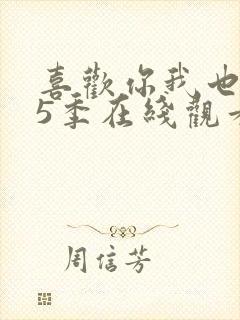 喜歡你我也
5季在綫觀
周信芳